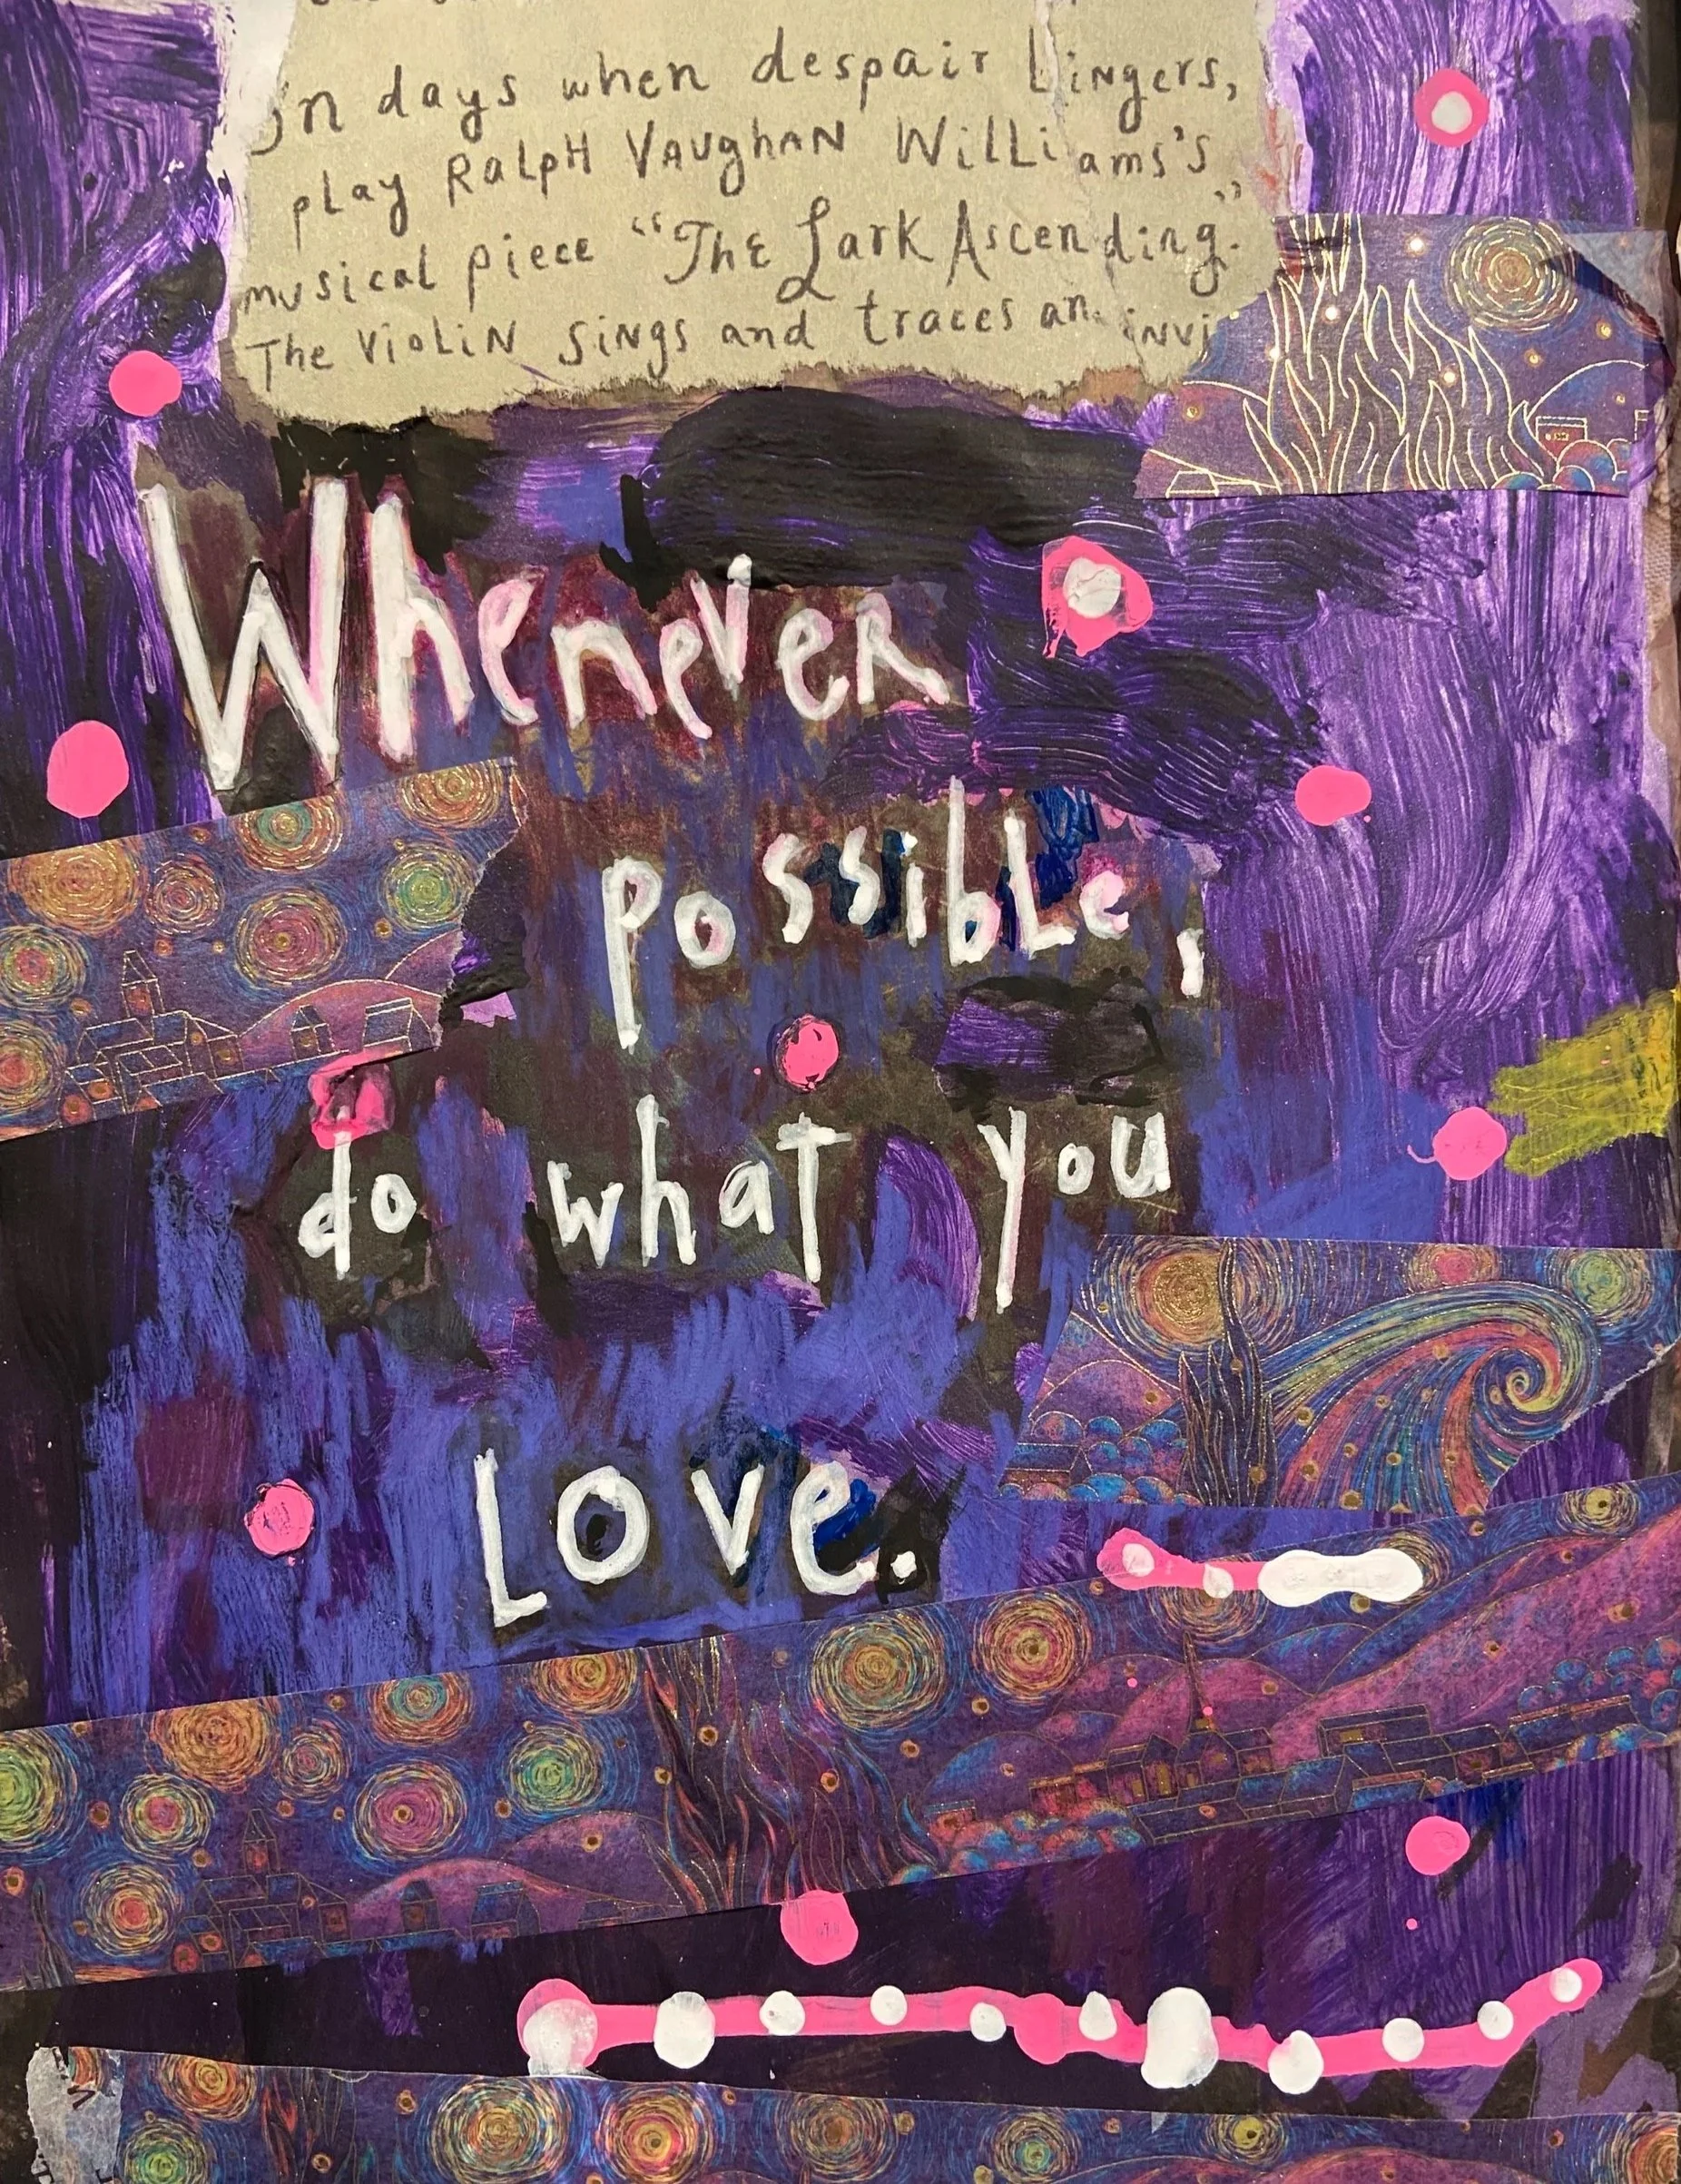 In days when despair Lingers,
play Ralph Vaughan Williams's
musical piece “The Lark Ascending.”
The violin sings and traces an invi
Whenever
possible,
do what you
Love.